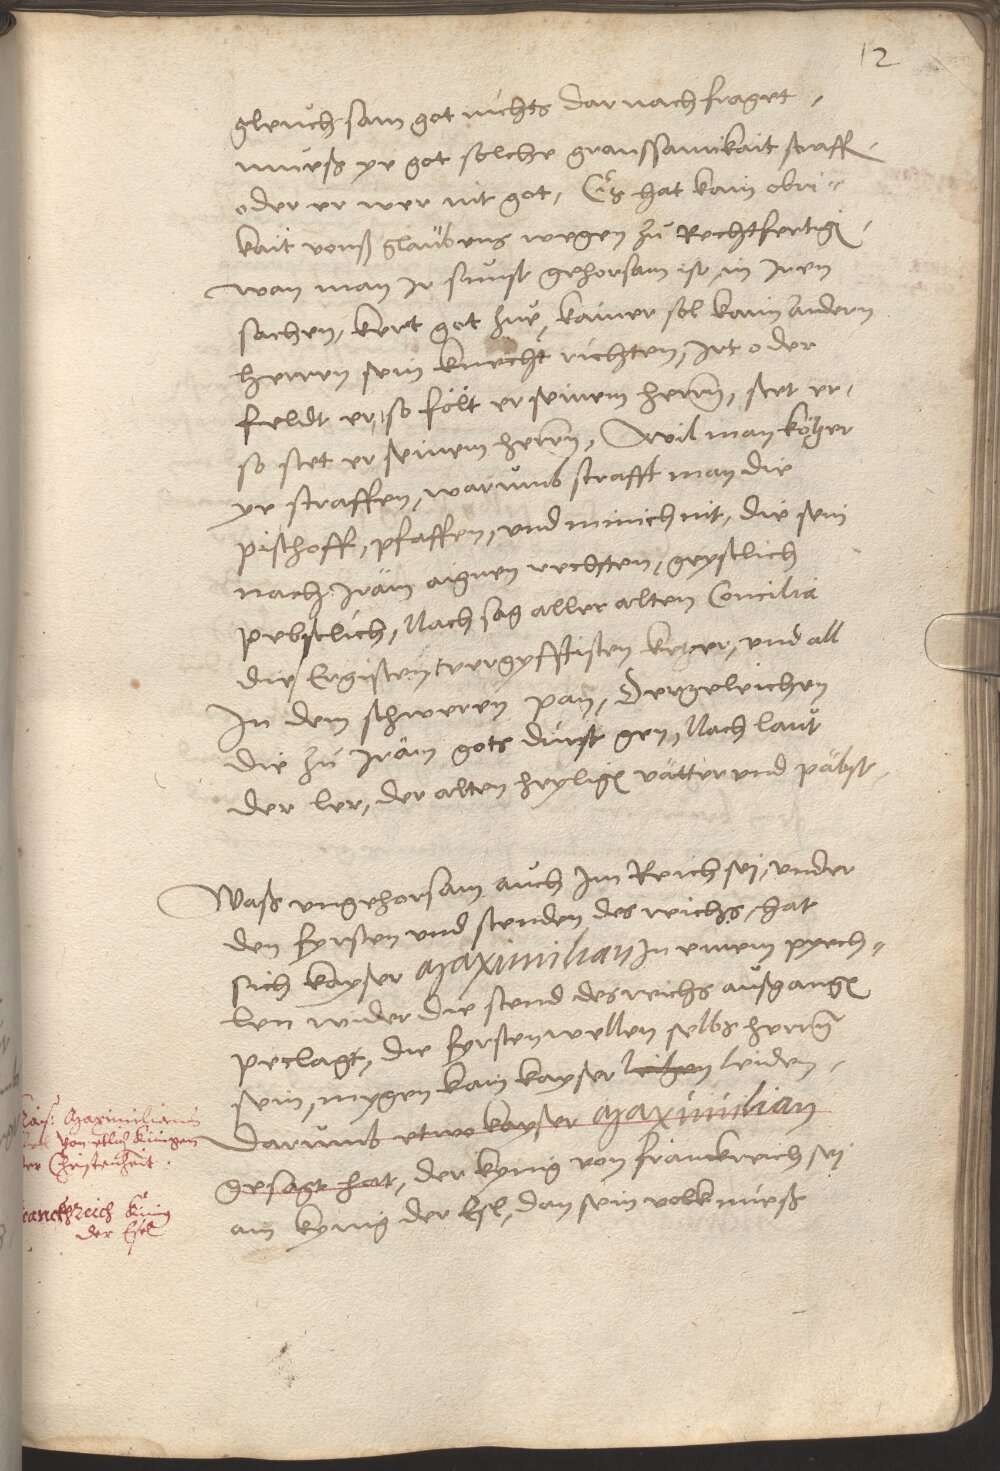 12
gleuch sam got nichts darnach fraget,
mueß ye got solche graussamikait straff,
oder er wer nit got, Es hat kain obri-
kait vonß glaubens wegen zu Rechtfertig,
wan man Ir sunst gehorsam ist, in Iren
sachen, kert got zue, kainer sol kain andern
herren sein knecht richten, Irt oder
feldt er, so fölt er seinem herrn, stet er,
so stet er seinem herrn, Wil man kötzer
ye straffen, warumb strafft man die
pischoff, pfaffen, und minich nit, die sein
nach Iräm aignen rechten, geystlich
pebstlich, Nach sag aller alten Concilia
die ergisten vergyfftisten ketzer, und all
In dem schweren pan, Dergeleichen
die zu Iräm gots dinst gen, Nach laut
der ler, der alten heylige vätter und päbst,
Waß ungehorsam auch Im Reich sey, under
den fyrsten und stenden des reichs, hat
sich kayser Maximilian In einem pyech-
len wider die stend des reichs außgange
peclagt, die fyrsten wellen selbs herrn
sein, mygen kain kayser leiden,
Darumb etwo kayser Maximilian
gesagt hat, der kynig von franckreich sey
ain kynig der Esl, dan sein volk mueß
Kais: Maximilianus
von etlich Kunigen
der Christenheit.
franckhreich Kunig
der Esel